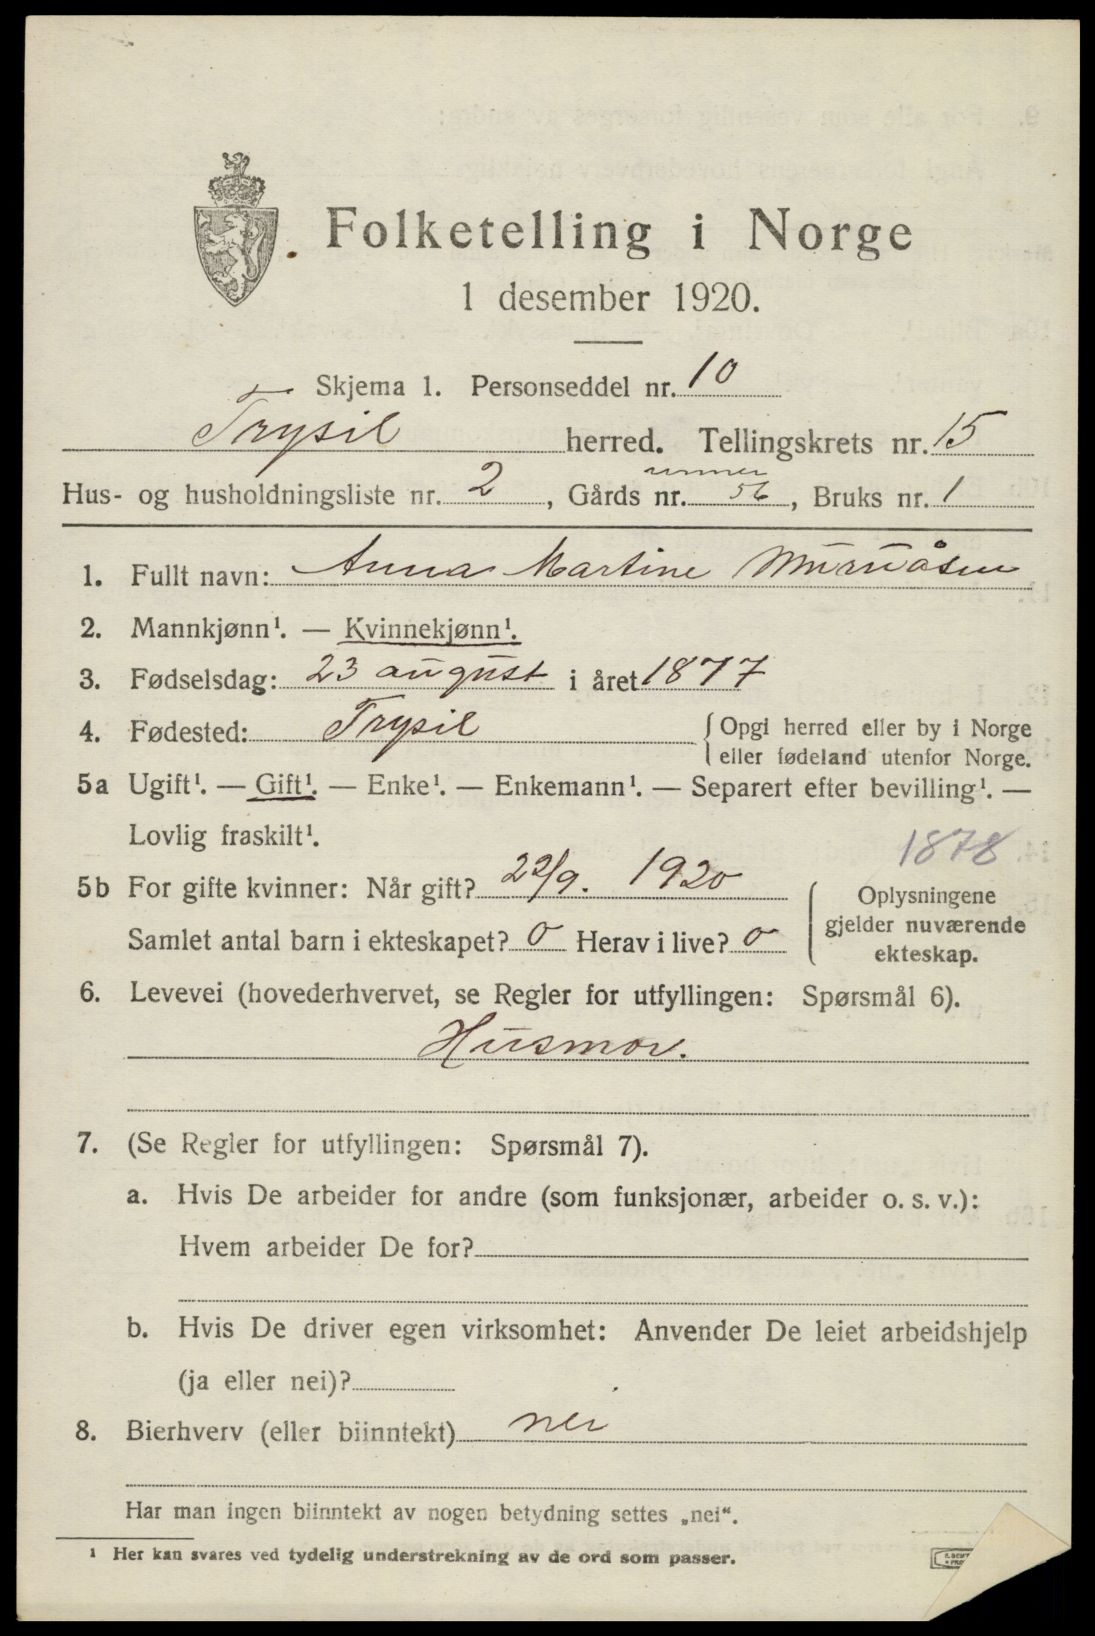 Folketelling i Norge
1 desember 1920.
Skjema 1. Personseddel nr. 10
Trysil herred. Tellingskrets nr. 15
Hus- og husholdningsliste nr. 2, Gårds nr. 56, Bruks nr. 1
1. Fullt navn: Anna Martine
2. Mannkjønn¹. — Kvinnekjønn¹.
3. Fødselsdag: 23 august i året 1877
4. Fødested: Trysil { Opgi herred eller by i Norge
eller fødeland utenfor Norge.
5a Ugift¹. — Gift¹. — Enke¹. — Enkemann¹. — Separert efter bevilling¹. —
Lovlig fraskilt¹.
1878
5b For gifte kvinner: Når gift? 22/9. 1920
Samlet antal barn i ekteskapet? 0 Herav i live? 0
{ Oplysningene
gjelder nuværende
ekteskap.
6. Levevei (hovederhvervet, se Regler for utfyllingen: Spørsmål 6).
Husmor.
7. (Se Regler for utfyllingen: Spørsmål 7).
a. Hvis De arbeider for andre (som funksjonær, arbeider o. s. v.):
Hvem arbeider De for?
b. Hvis De driver egen virksomhet: Anvender De leiet arbeidshjelp
(ja eller nei)?
8. Bierhverv (eller biinntekt) nei
Har man ingen biinntekt av nogen betydning settes „nei“.
¹ Her kan svares ved tydelig understrekning av de ord som passer.